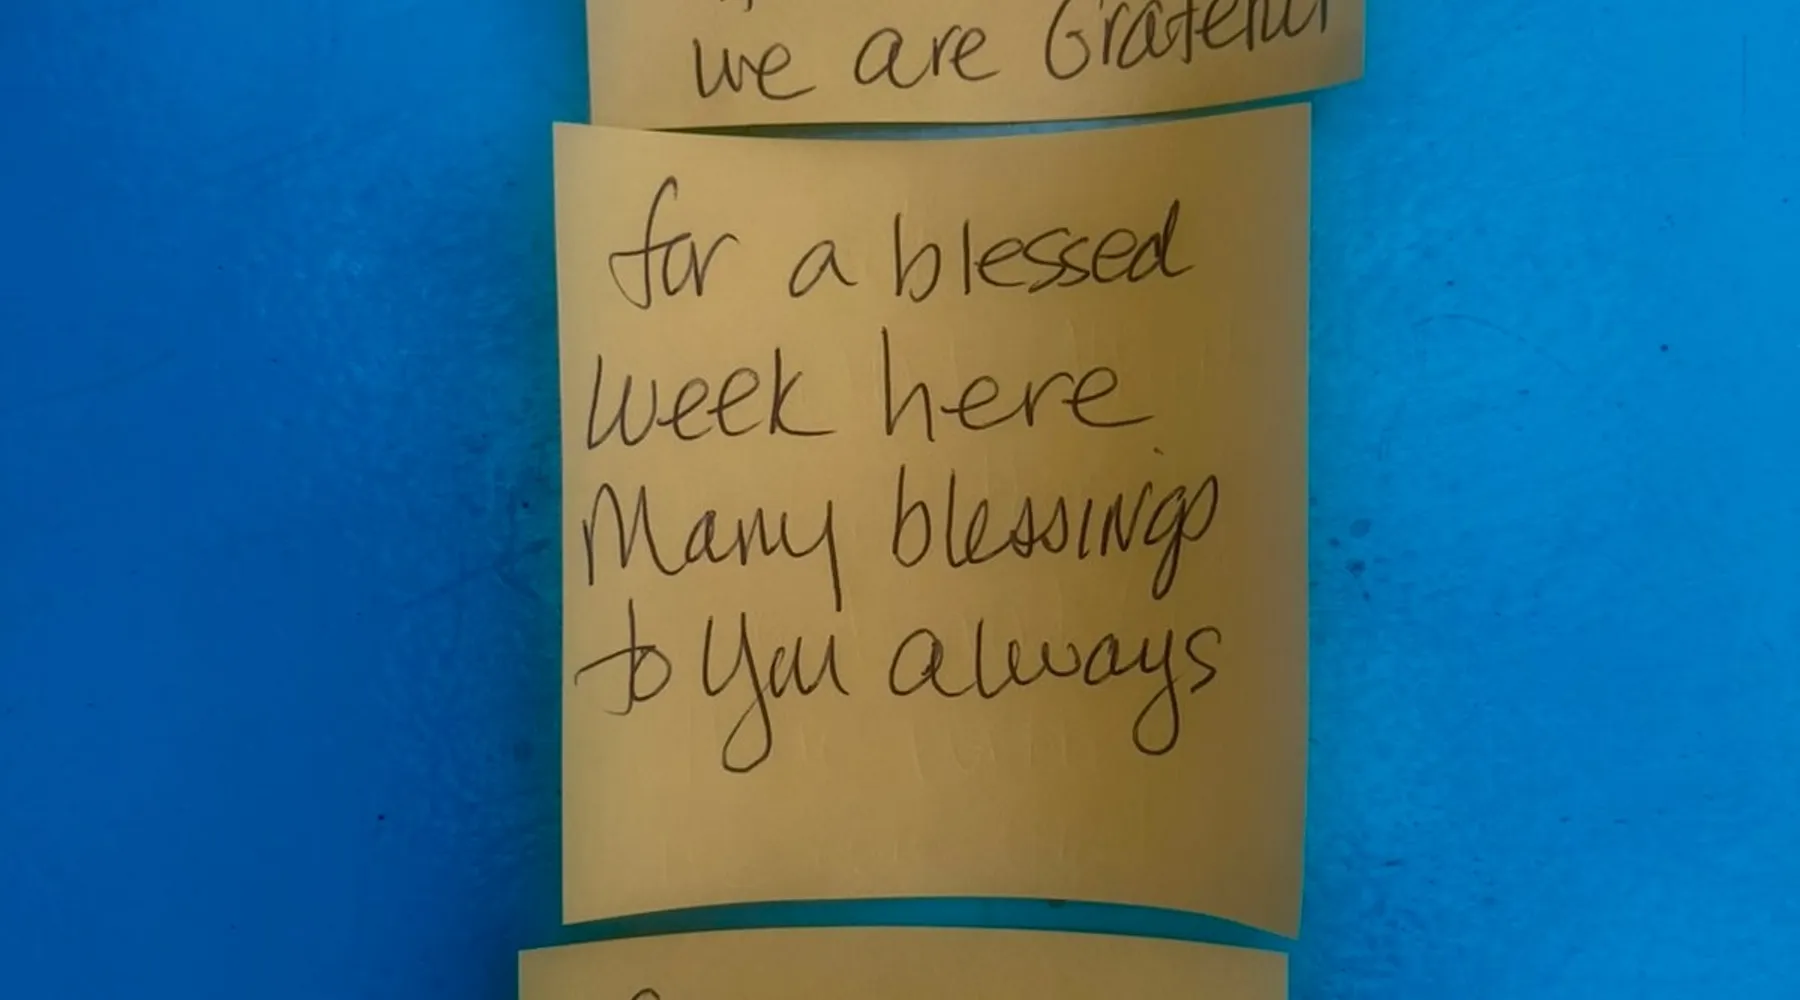 we are Grateful
for a blessed
week here
Many blessings
to you always